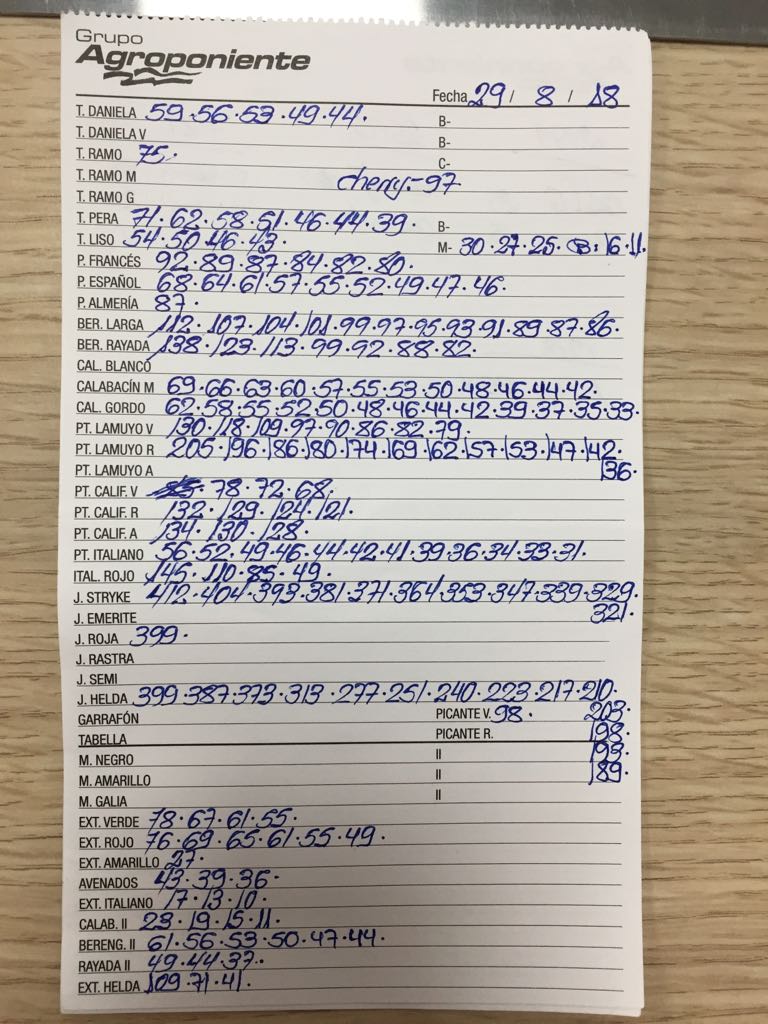 Grupo
Agroponiente
Fecha 29 / 8 / 18
T. DANIELA 59·56·53·49·44· B-
T. DANIELA V B-
T. RAMO 75· C-
T. RAMO M cherry:-97
T. RAMO G
T. PERA 71·62·58·51·46·44·39· B-
T. LISO 54·50·46·43· M- 30·27·25· B:16·11·
P. FRANCÉS 92·89·87·84·82·80·
P. ESPAÑOL 68·64·61·57·55·52·49·47·46·
P. ALMERÍA 87·
BER. LARGA 112·107·104·101·99·97·95·93·91·89·87·86·
BER. RAYADA 138·123·113·99·92·88·82·
CAL. BLANCO
CALABACÍN M 69·66·63·60·57·55·53·50·48·46·44·42·
CAL. GORDO 62·58·55·52·50·48·46·44·42·39·37·35·33·
PT. LAMUYO V 130·118·109·97·90·86·82·79·
PT. LAMUYO R 205·196·186·180·174·169·162·157·153·147·142·
PT. LAMUYO A 136·
PT. CALIF. V 78·72·68·
PT. CALIF. R 132·129·124·121·
PT. CALIF. A 134·130·128·
PT. ITALIANO 56·52·49·46·44·42·41·39·36·34·33·31·
ITAL. ROJO 145·110·85·49·
J. STRYKE 412·404·393·381·371·364·353·347·339·329·
J. EMERITE 321·
J. ROJA 399·
J. RASTRA
J. SEMI
J. HELDA 399·387·373·313·277·251·240·223·217·210·
GARRAFÓN PICANTE V. 98· 203·
TABELLA PICANTE R. 198·
M. NEGRO II 193·
M. AMARILLO II 189·
M. GALIA II
EXT. VERDE 78·67·61·55·
EXT. ROJO 76·69·65·61·55·49·
EXT. AMARILLO 27·
AVENADOS 43·39·36·
EXT. ITALIANO 17·13·10·
CALAB. II 23·19·15·11·
BERENG. II 61·56·53·50·47·44·
RAYADA II 49·44·37·
EXT. HELDA 109·71·41·